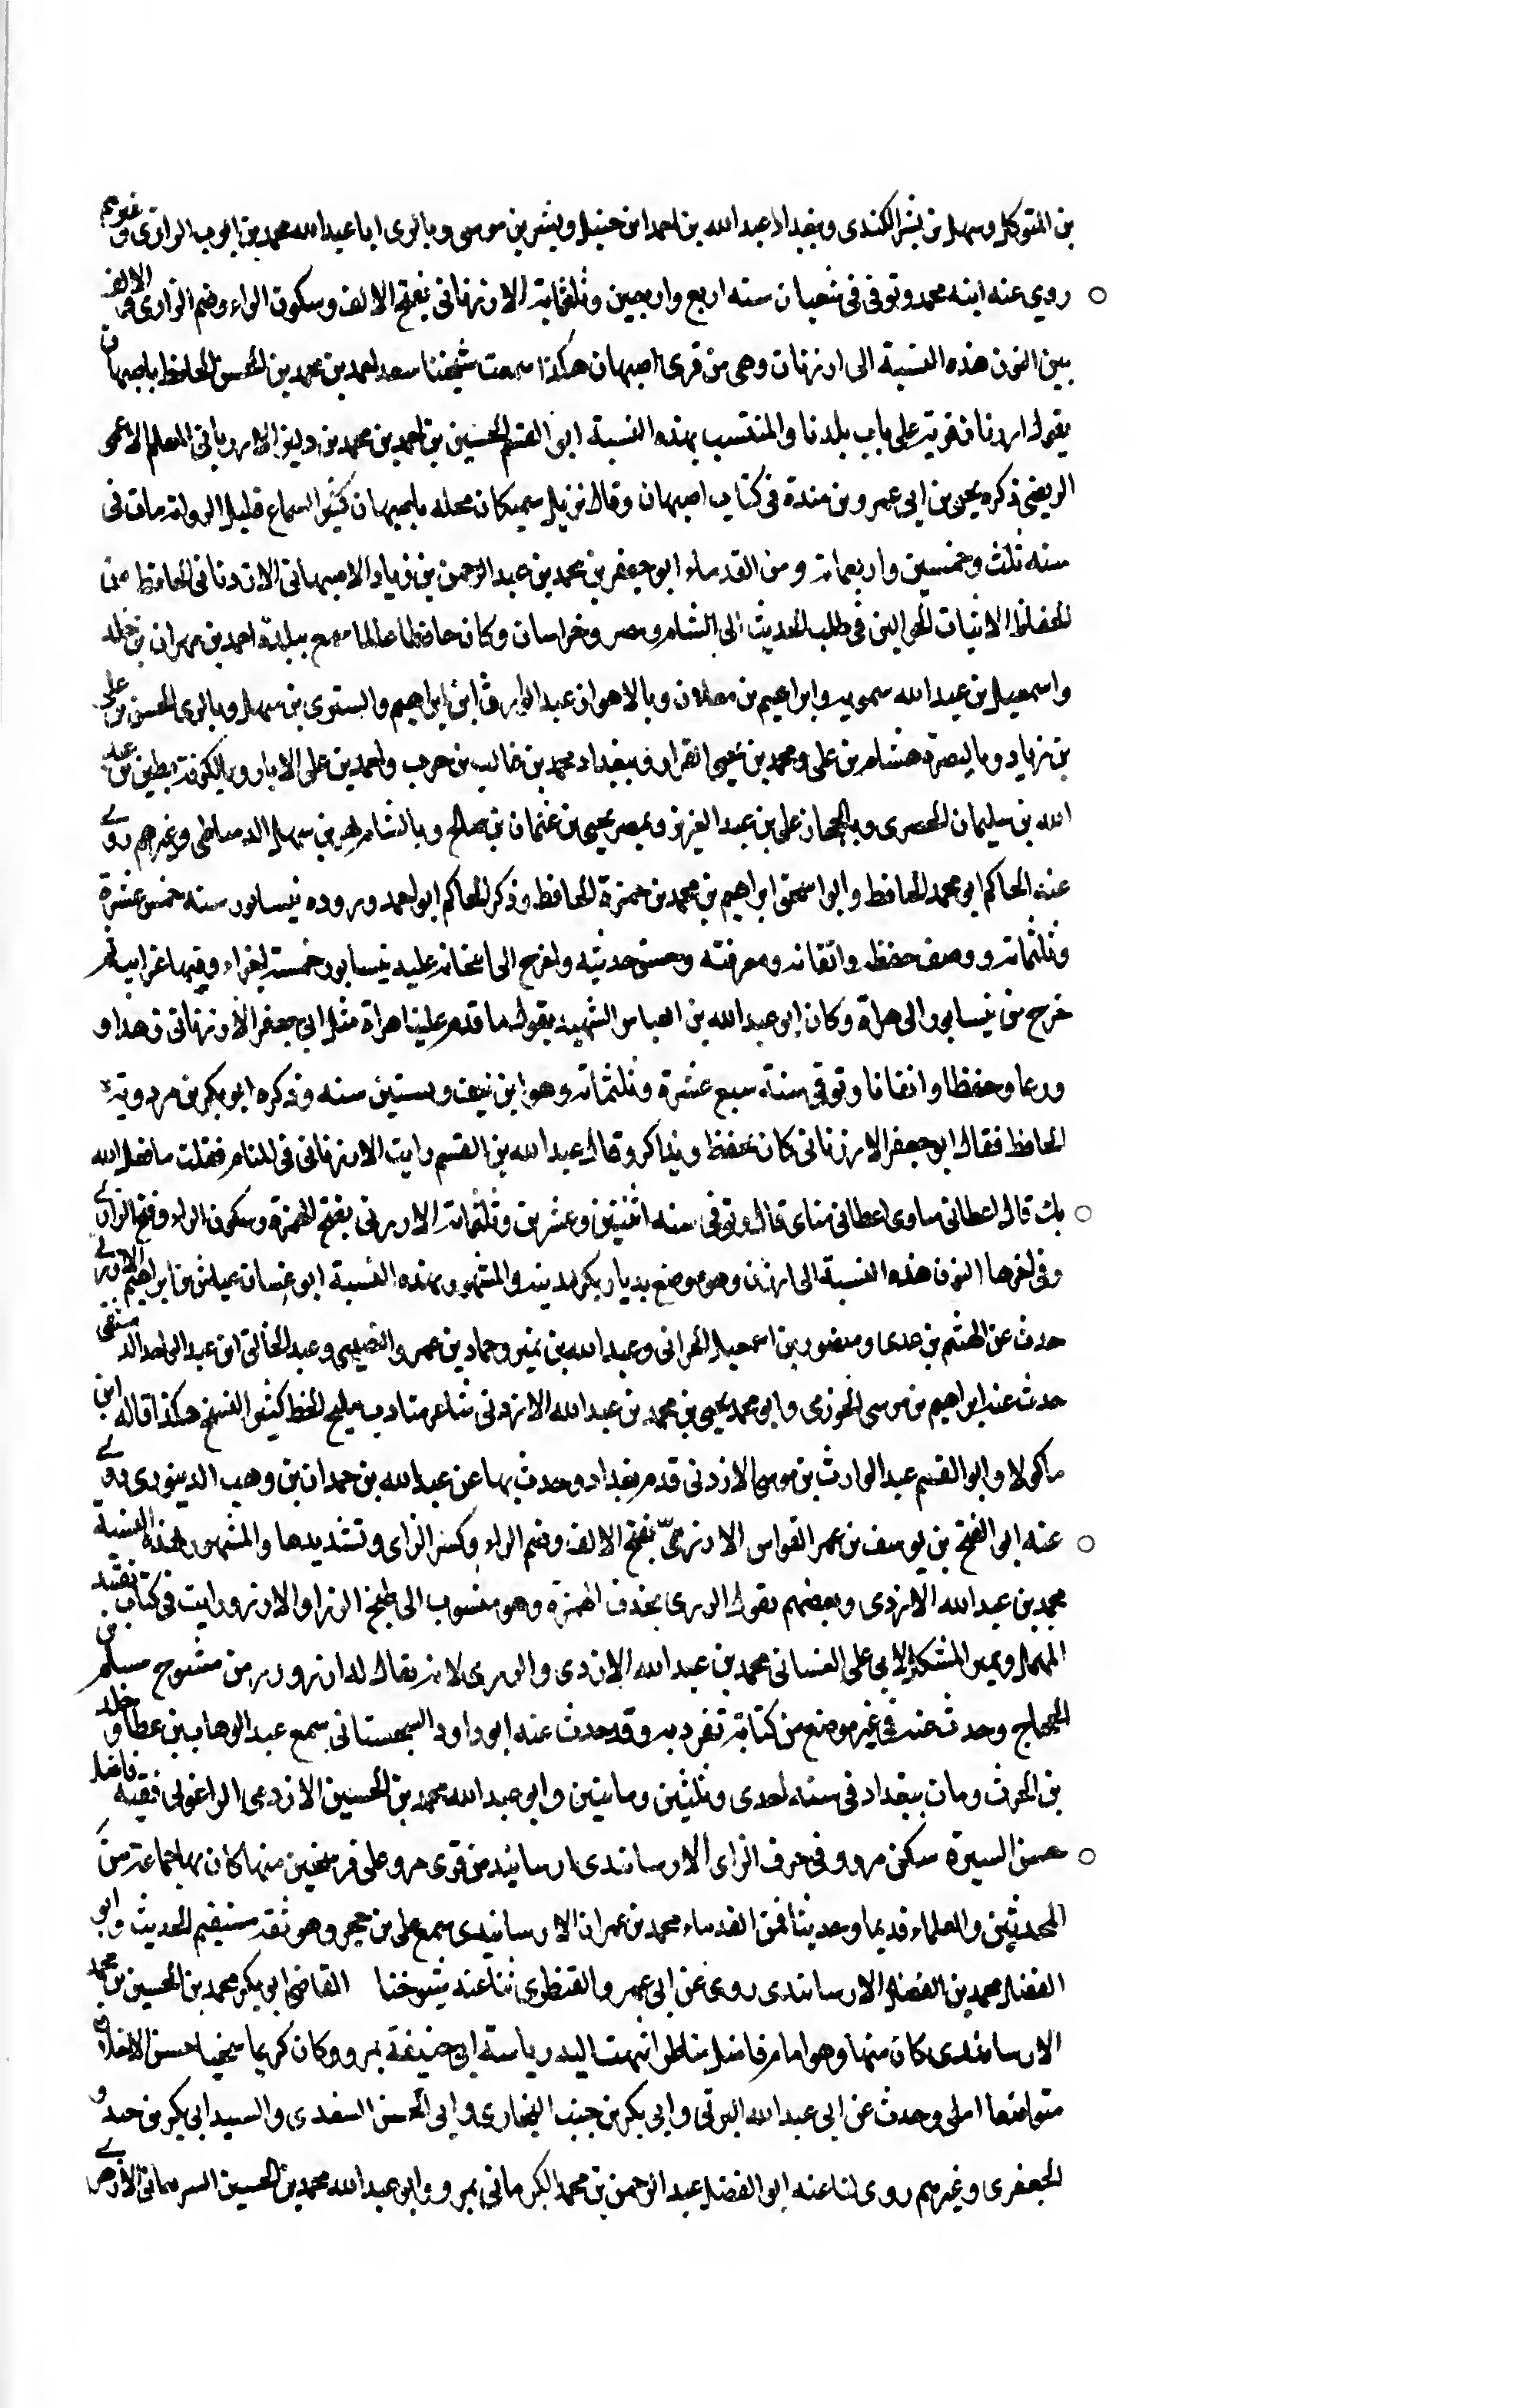 بن المتوكل وسهل بن بشر الكندى وببغداد عبد الله بن احمد ابن حنبل وبشر بن موسى وبالرى ابا عبد الله محمد بن ايوب الرازى وغيرهم
روى عنه ابنه محمد وتوفى فى شعبان سنه اربع واربعين وثلثماية الارزنانى بفتح الالف وسكون الراء وضم الزاى و الالف
بين النون هذه النسبة الى ارزنان وهى من قرى اصبهان هكذا سمعت شيخنا سعد احمد بن محمد بن الحسن الحافظ باصبهان
يقول ارزنان قرية على باب بلدنا والمنتسب بهذه النسبة ابو القسم الحسين بن احمد بن محمد بن المعلم الاعمى
ذكره يحيى بن ابى عمرو بن مندة فى كتاب اصبهان وقال نزيل سميكان محله باصبهان كثير السماع قليل الرواية مات فى
سنه ثلث وخمسين واربعماية ومن القدماء ابو جعفر بن محمد بن عبد الرحمن بن زياد الاصبهانى الارزنانى الحافظ من
الحفاظ الاثبات الجوالين فى طلب الحديث الى الشام ومصر وخراسان وكان حافظا عالما سمع ببلدة احمد بن مهران بن خلد
واسمعيل بن عبد الله سمويه وابراهيم بن معدان وبالاهواز عبد الوارث ابن ابراهيم والتسترى بن سهل وبالرى الحسن بن على
بن زياد وبالبصرة هشام بن على ومحمد بن يحيى القزاز وببغداد محمد بن غالب بن حرب واحمد بن على الابار وبالكوفة بطين بن عبد
الله بن سليمان الحضرى وبالحجاز على بن عبد العزيز وبمصر يحيى بن عثمان بن صالح وبالشام بن سهل الدمياطى وغيرهم روى
عنه الحاكم ابى محمد الحافظ وابو اسحق ابراهيم بن محمد بن حمزة الحافظ وذكر الحاكم ابو احمد وروده نيسابور سنه خمس عشرة
وثلثماية ووصف حفظه واتقانه ومعرفته وحسن حديثه عليه نيسابور خمسة اجزاء وفيها غرايب ثم
خرج من نيسابور الى هراة وكان ابو عبد الله بن العباس الشهيد يقول ما قدم علينا هراة مثل ابى جعفر الارزنانى زهدا و
ورعا وحفظا واتقانا وتوفى سنة سبع عشرة وثلثماية وهو ابن نيف وستين سنه وذكره ابو بكر بن مردويه
الحافظ فقال ابو جعفر الارزنانى كان يحفظ ويذاكر وقال عبد الله بن القسم رايت الارزنانى فى المنام فقلت ما فعل الله
بك قال اعطانى مناوى اعطانى مناى قال وتوفى سنه اثنتين وعشرين وثلثماية الارزنى بفتح الهمزة وسكون الراء وفتح الزاى
وفى اخرها النون هذه النسبة الى ارزن وهو موضع بديار بكر مدينة والمشهور بهذه النسبة ابو غسان عياش بن ابراهيم الارزنى
حدث عن الهثيم بن عدى ومنصور بن اسمعيل الحرانى وعبد الله بن نمير وحماد بن عمرو النصيبى وعبد الخالق ابن عبد الواحد الدمشقى
حدث عنه ابراهيم بن موسى الخوزى وابو محمد يحيى بن محمد بن عبد الله الارزنى شاعر متادب مليح الخط كثير النسخ هكذا قاله ابن
ماكولا وابو القسم عبد الوارث بن موسى الارزنى قدم بغداد وحدث بها عن عبد الله بن حمدان بن وهب الدينورى روى
عنه ابو الفتح بن يوسف بن عمر القواس الارزىّ بفتح الالف وضم الراء وكسر الزاى وتشديدها والمشهور بهذه النسبة
محمد بن عبد الله الارزى وبعضهم يقول الرزى بحذف الهمزة وهو منسوب الى طبخ الرز او الارز ورايت فى كتاب تقييد
المهمل وتمييز المشكل لابى على الغسانى محمد بن عبد الله الارزى والرزى لانه يقال له ارز ورز من مشيوخ مسلم بن
الحجاج وحدث عنه فى غير موضع من كتابة تفرد به وقد حدث عنه ابو داود السجستانى سمع عبد الوهاب بن عطا وخلد
بن الحرث ومات ببغداد فى سنه احدى وثلثين ومايتين وابو عبد الله محمد بن الحسين الارزى الزاغولى فقيه فاضل
حسن السيرة سكن مرو وفى حرف الزاى الارسابندى ارسابند من قرى مرو على فرسخين منها كان بها جماعة من
المحدثين والعلماء قديما وحديثا فمن القدماء محمد بن عمران الارسابندى سمع على بن حجر وهو ثقه مستقيم الحديث وابو
الفضل محمد بن الفضل الارسابندى روى عن ابى عمرو القنطرى ثنا عنه شيوخنا القاضى ابو بكر محمد بن الحسين بن محمد
الارسابندى كان منها وهو امام فاضل مناظر انتهت اليه رياسة ابى حنيفة بمرو وكان كريما سخيا حسن الاخلاق
متواضعا املى وحدث عن ابى عبد الله البرقى وابى بكر بن البخارى وابى الحسن السغدى والسيد ابى بكر بن حيد و
الجعفرى وغيرهم روى لنا عنه ابو الفضل عبد الرحمن بن محمد الكرمانى بمرو وابو عبد الله محمد بن الحسين